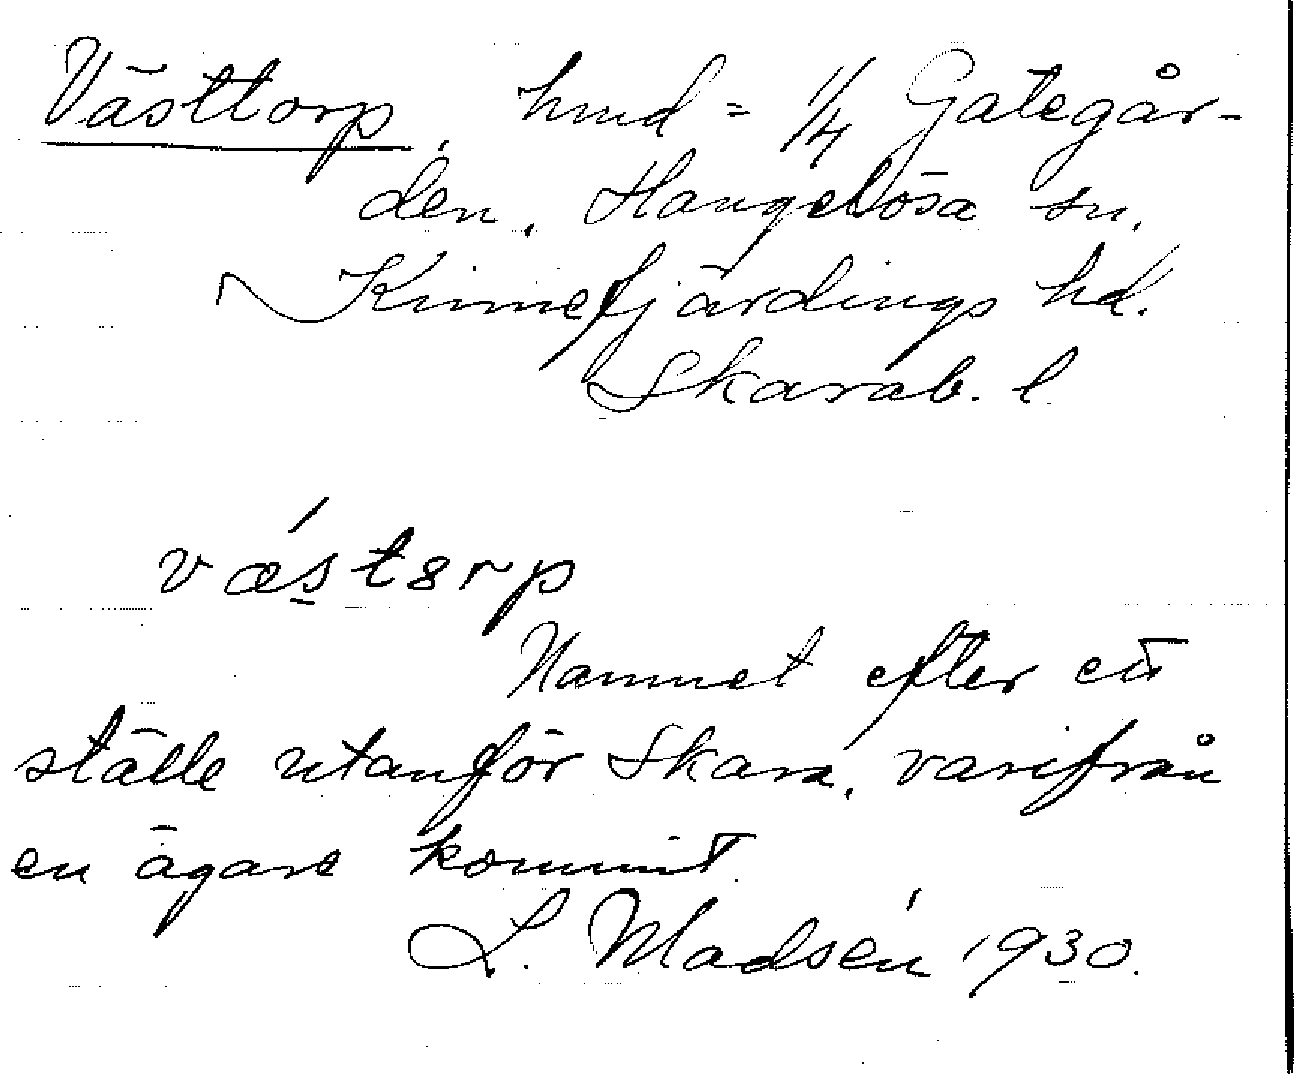 Västtorp, hmd = 1/4 Gategår-
den, Hangelösa sn,
Kinnefjärdings hd.
Skarab. l
væ´s̠tɜrp
Namnet efter ett
ställe utanför Skara, varifrån
en ägare kommit.
L. Madsén 1930.